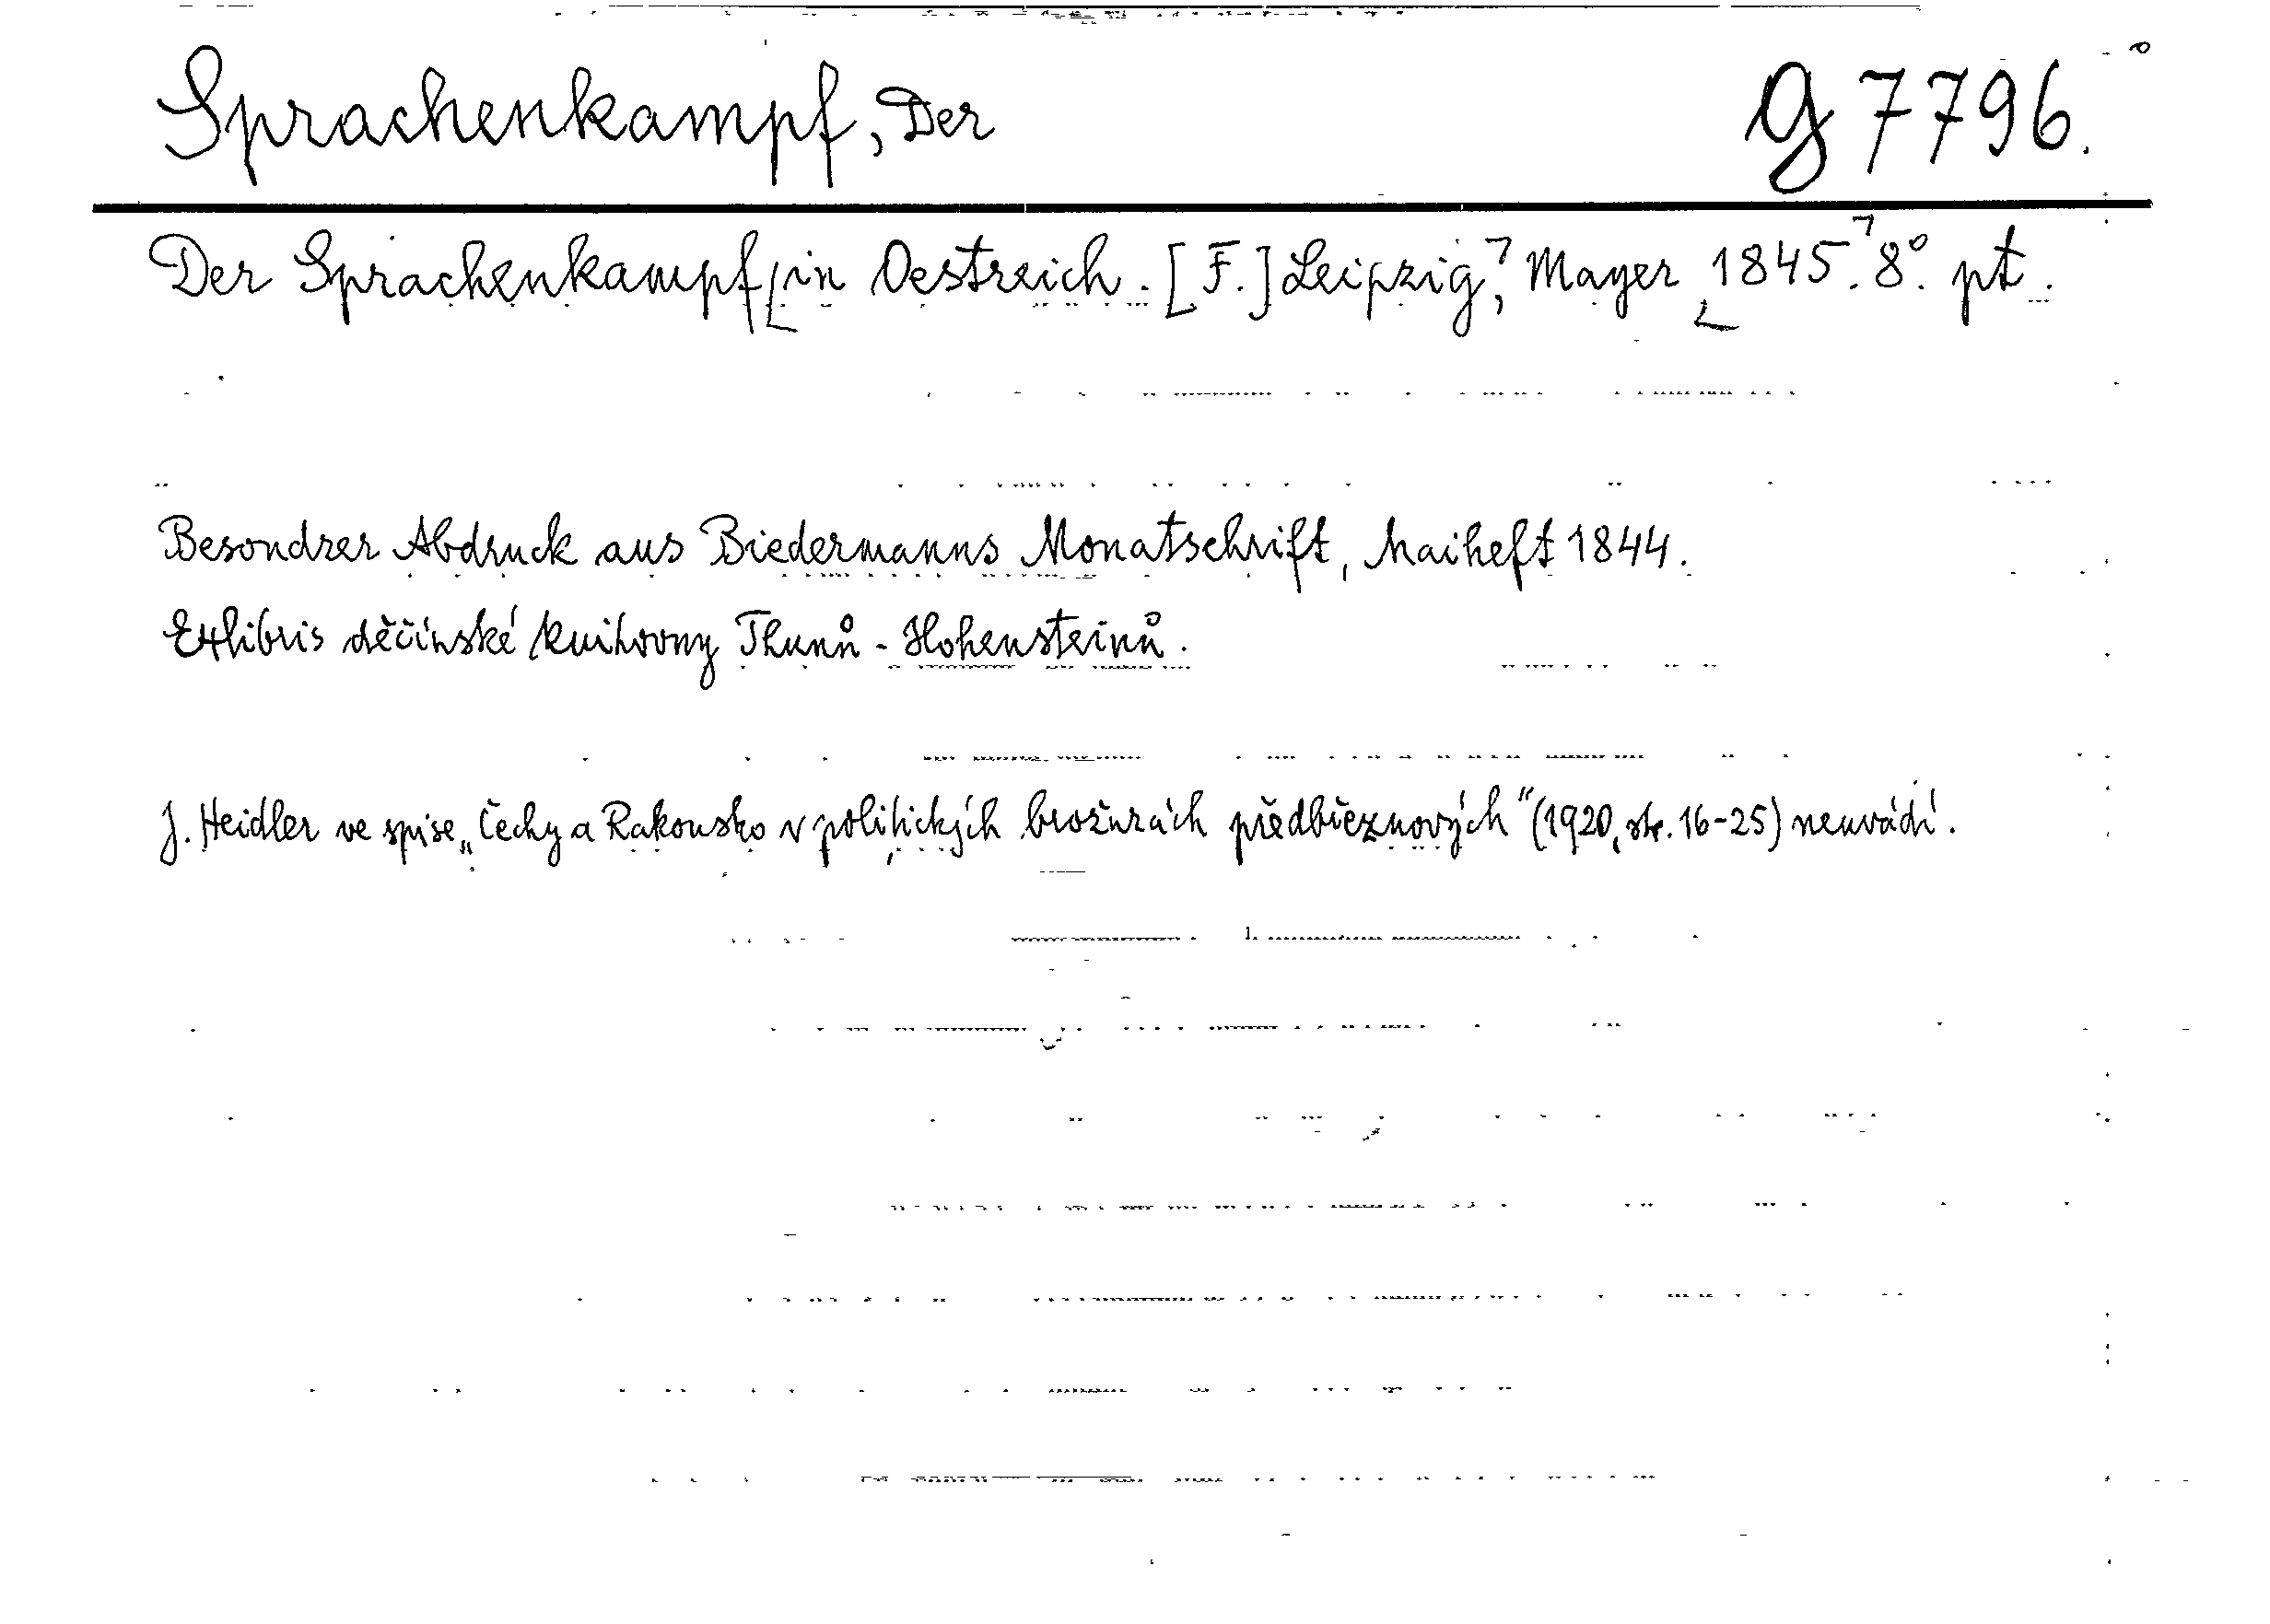 Sprachenkampf, Der g 7796.
Der Sprachenkampf in Oestreich. [F.] Leipzig, Mayer 1845. 8° pt.
Besondrer Abdruck aus Biedermanns Monatschrift, Maiheft 1844.
Exlibris děčínské knihovny Thunů - Hohensteinů.
J. Heidler ve spise „Čechy a Rakousko v politických brožurách předbřeznových" (1920, str. 16-25) neuvádí.